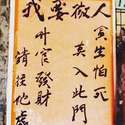 我要做人
貪生怕死
莫入此門
升官發財
請往他處